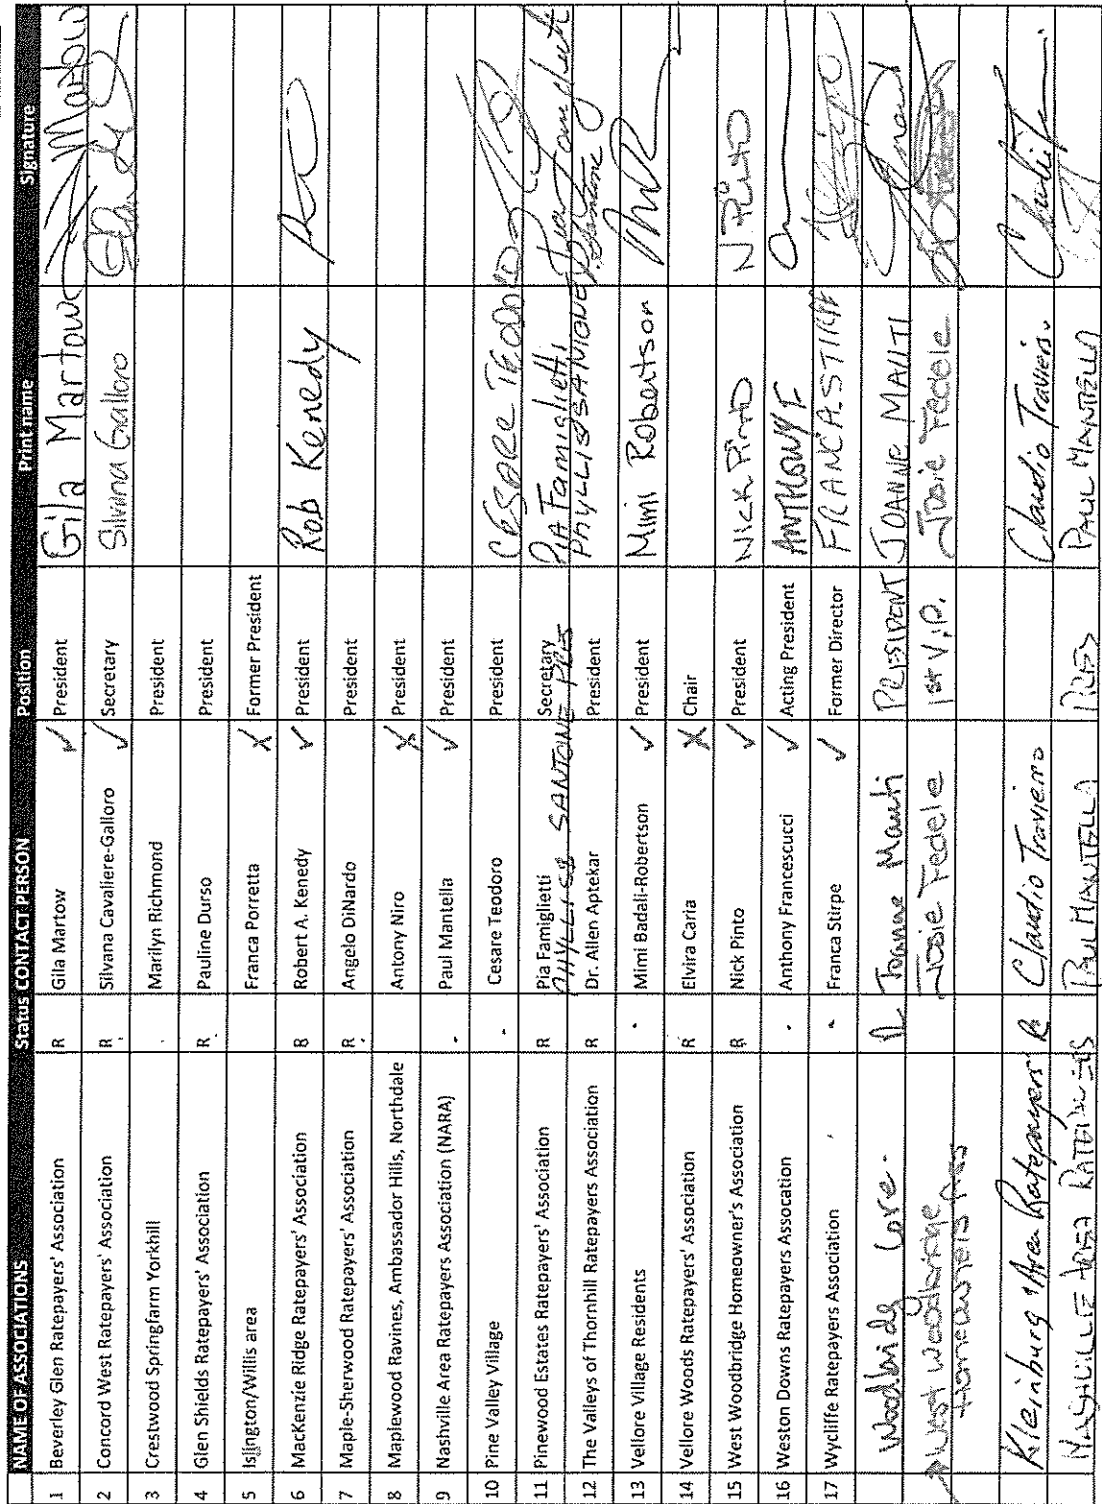 NAME OF ASSOCIATIONS Status CONTACT PERSON Position Print name Signature
1 Beverley Glen Ratepayers' Association R Gila Martow ✓ President Gila Martow Martow
2 Concord West Ratepayers' Association R Silvana Cavaliere-Galloro ✓ Secretary Silvana Galloro
3 Crestwood Springfarm Yorkhill Marilyn Richmond President
4 Glen Shields Ratepayers' Association R Pauline Durso President
5 Islington/Willis area Franca Porretta X Former President
6 MacKenzie Ridge Ratepayers' Association R Robert A. Kenedy ✓ President Rob Kenedy
7 Maple-Sherwood Ratepayers' Association R Angelo DiNardo President
8 Maplewood Ravines, Ambassador Hills, Northdale Antony Niro X President
9 Nashville Area Ratepayers Association (NARA) Paul Mantella ✓ President
10 Pine Valley Village Cesare Teodoro President CESARE TEODORO
11 Pinewood Estates Ratepayers' Association R Pia Famiglietti Secretary Pia Famiglietti
PHYLLISS SANTONE PRES PHYLLISS SANTONE
12 The Valleys of Thornhill Ratepayers Association R Dr. Allen Aptekar President
13 Vellore Village Residents Mimi Badali-Robertson ✓ President Mimi Robertson
14 Vellore Woods Ratepayers' Association R Elvira Caria X Chair
15 West Woodbridge Homeowner's Association R Nick Pinto ✓ President NICK PINTO N. Pinto
16 Weston Downs Ratepayers Assocation Anthony Francescucci ✓ Acting President ANTHONY F.
17 Wycliffe Ratepayers Association Franca Stirpe ✓ Former Director FRANCA STIRPE
Woodbridge Core. R Joanne Mauti PRESIDENT JOANNE MAUTI
West Woodbridge Josie Fedele 1st V.P. Josie Fedele
Homeowners Ass
Kleinburg & Area Ratepayers' R Claudio Travierso Claudio Travierso
NASHVILLE AREA RATEPAYERS PAUL MANTELLA PRES PAUL MANTELLA